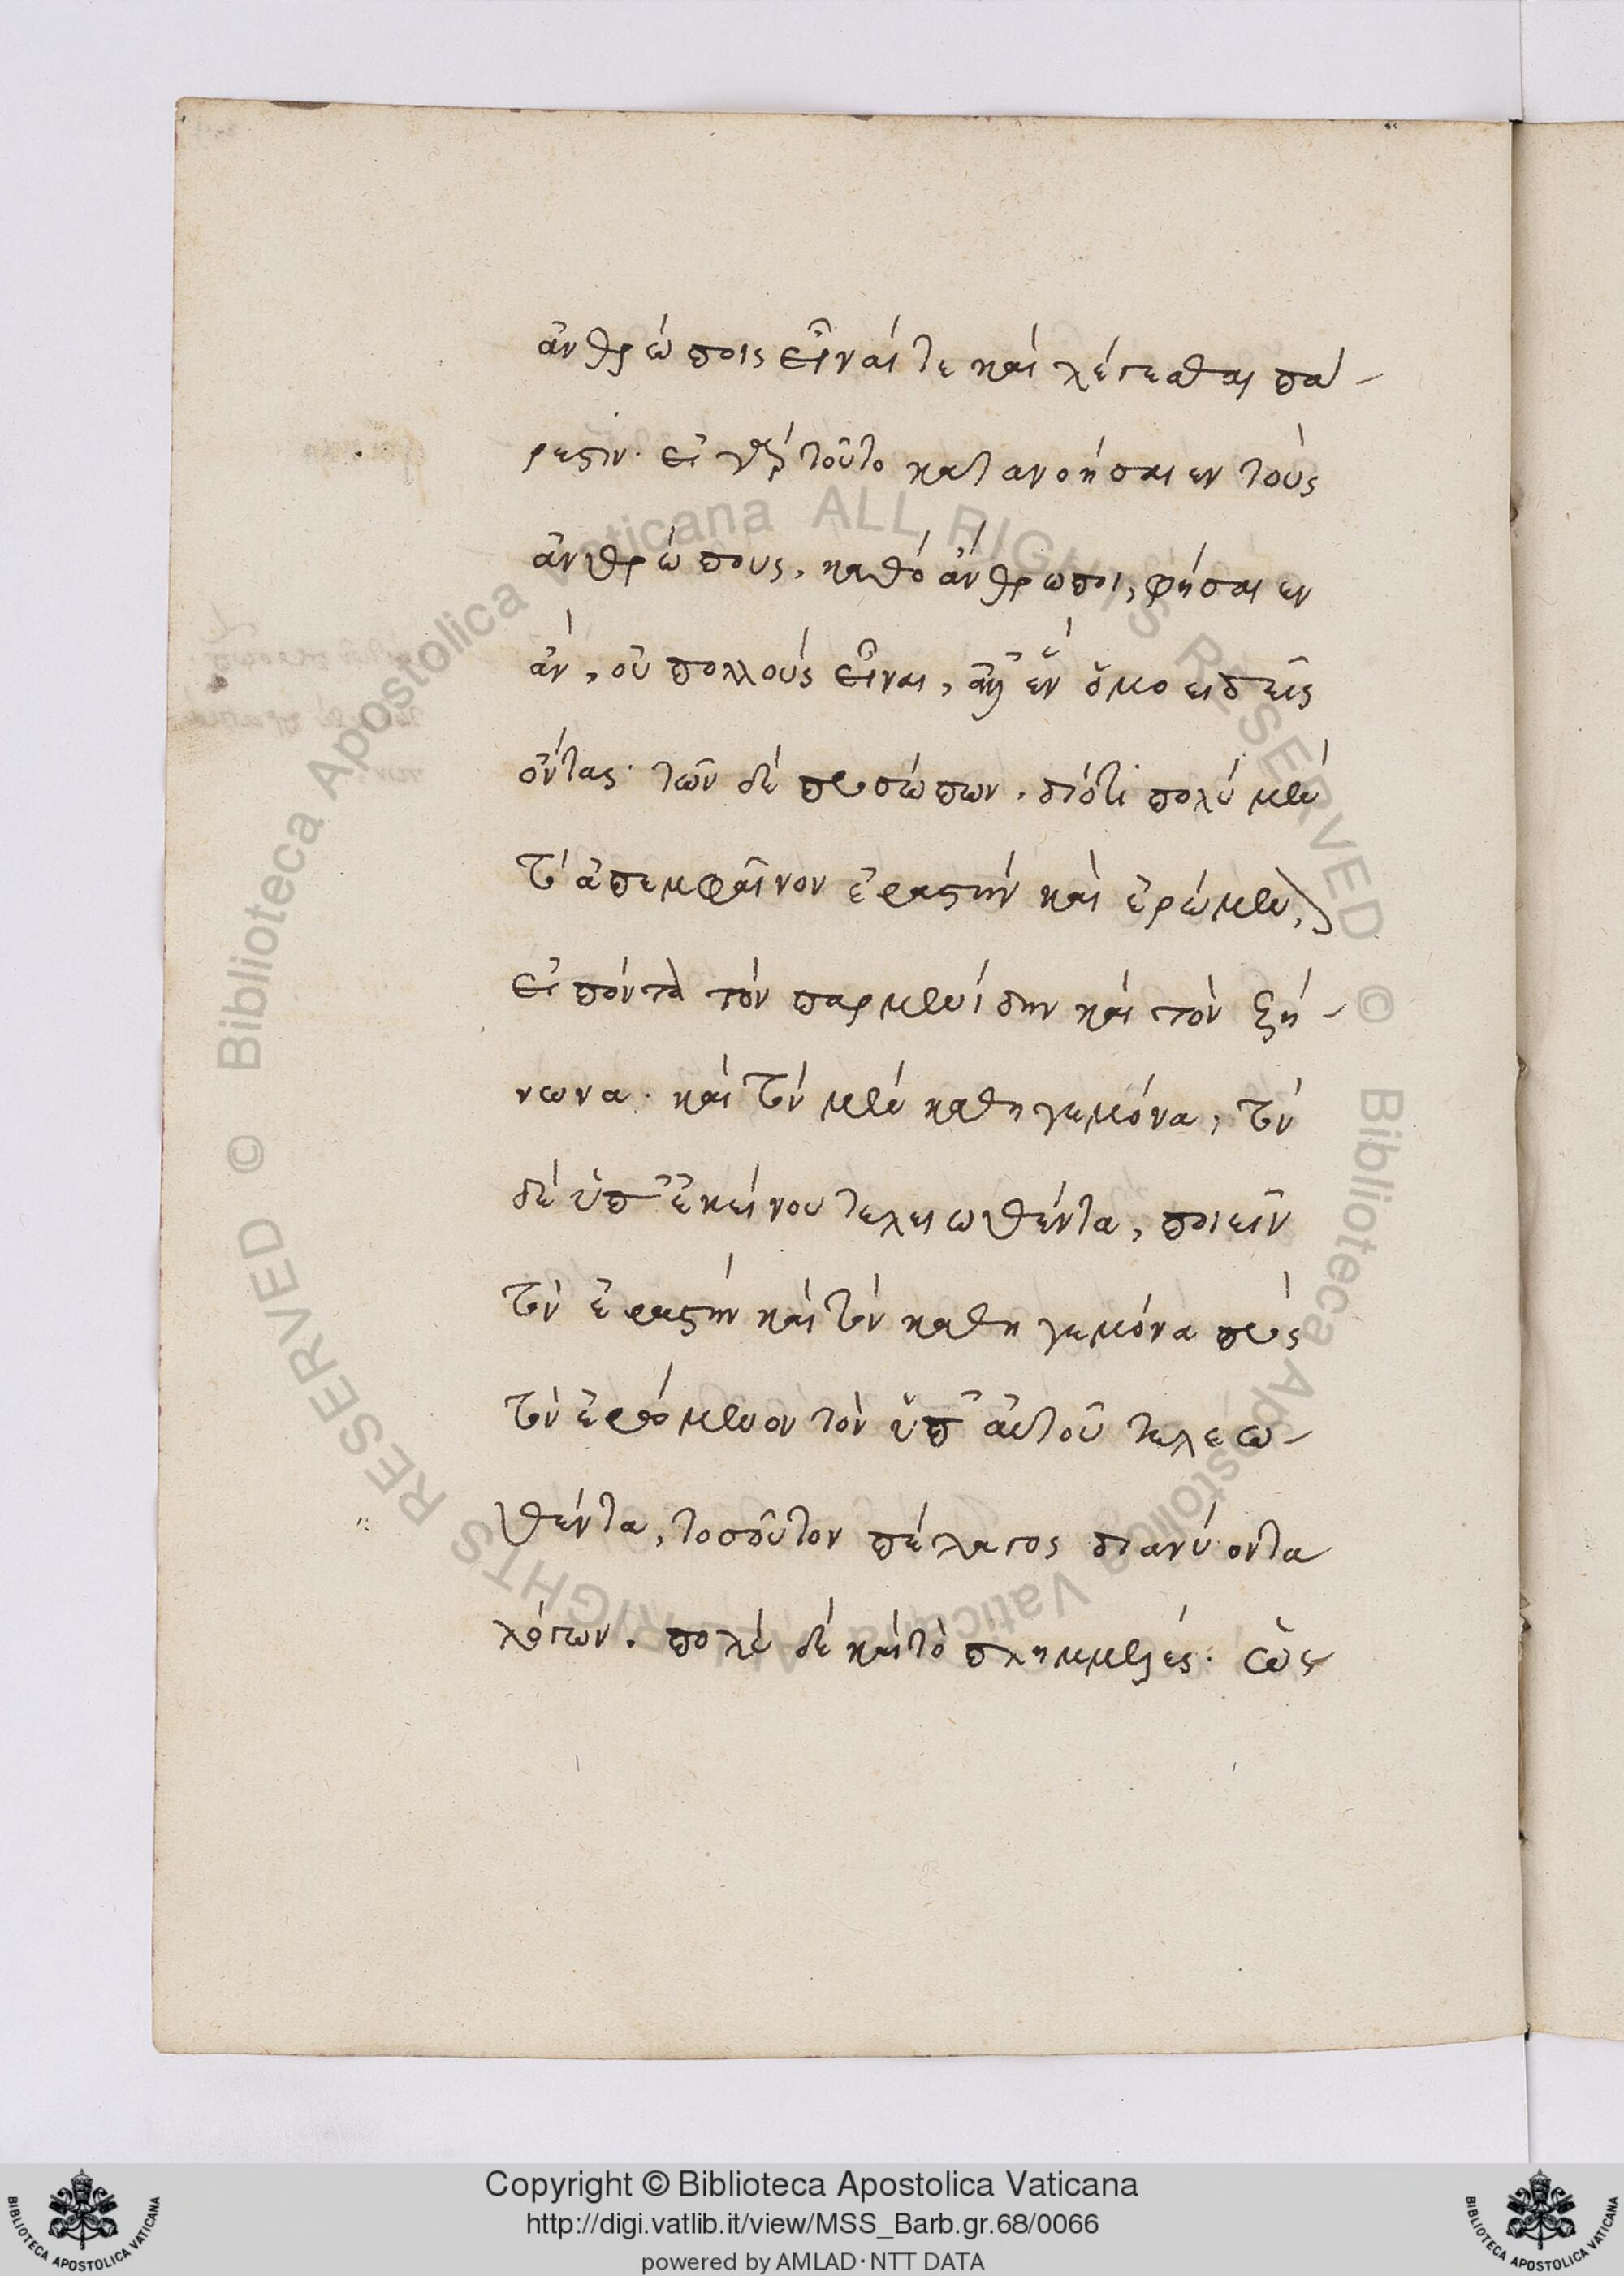 ἀνθρώποις εἶναί τε καὶ λέγεσθαι πά-
ρεστιν. εἰ γὰρ τοῦτο κατανοήσαιεν τοὺς
ἀνθρώπους, καθὸ ἄνθρωποι, φήσαιεν
ἂν, οὐ πολλοὺς εἶναι, ἀλλ' ἓν ὁμοειδεῖς
ὄντας. τῶν δὲ προσώπων. διότι πολὺ μὲν
τὸ ἀπεμφαῖνον ἐραστὴν καὶ ἐρώμενον,
εἰπόντα τὸν παρμενίδην καὶ τὸν ζή-
νωνα. καὶ τὸν μὲν καθηγεμόνα, τὸν
δὲ ὑπ' ἐκείνου τελειωθέντα, ποιεῖν
τὸν ἐραστὴν καὶ τὸν καθηγεμόνα πρὸς
τὸν ἐρώμενον τὸν ὑπ' αὐτοῦ τελεω-
θέντα, τοσοῦτον πέλαγος διανύοντα
λόγων. πολὺ δὲ καὶ τὸ πλημμελές. ὥς
Copyright © Biblioteca Apostolica Vaticana
http://digi.vatlib.it/view/MSS_Barb.gr.68/0066
powered by AMLAD·NTT DATA
BIBLIOTECA APOSTOLICA VATICANA
BIBLIOTECA APOSTOLICA VATICANA
© Biblioteca Apostolica Vaticana ALL RIGHTS RESERVED
© Biblioteca Apostolica Vaticana ALL RIGHTS RESERVED